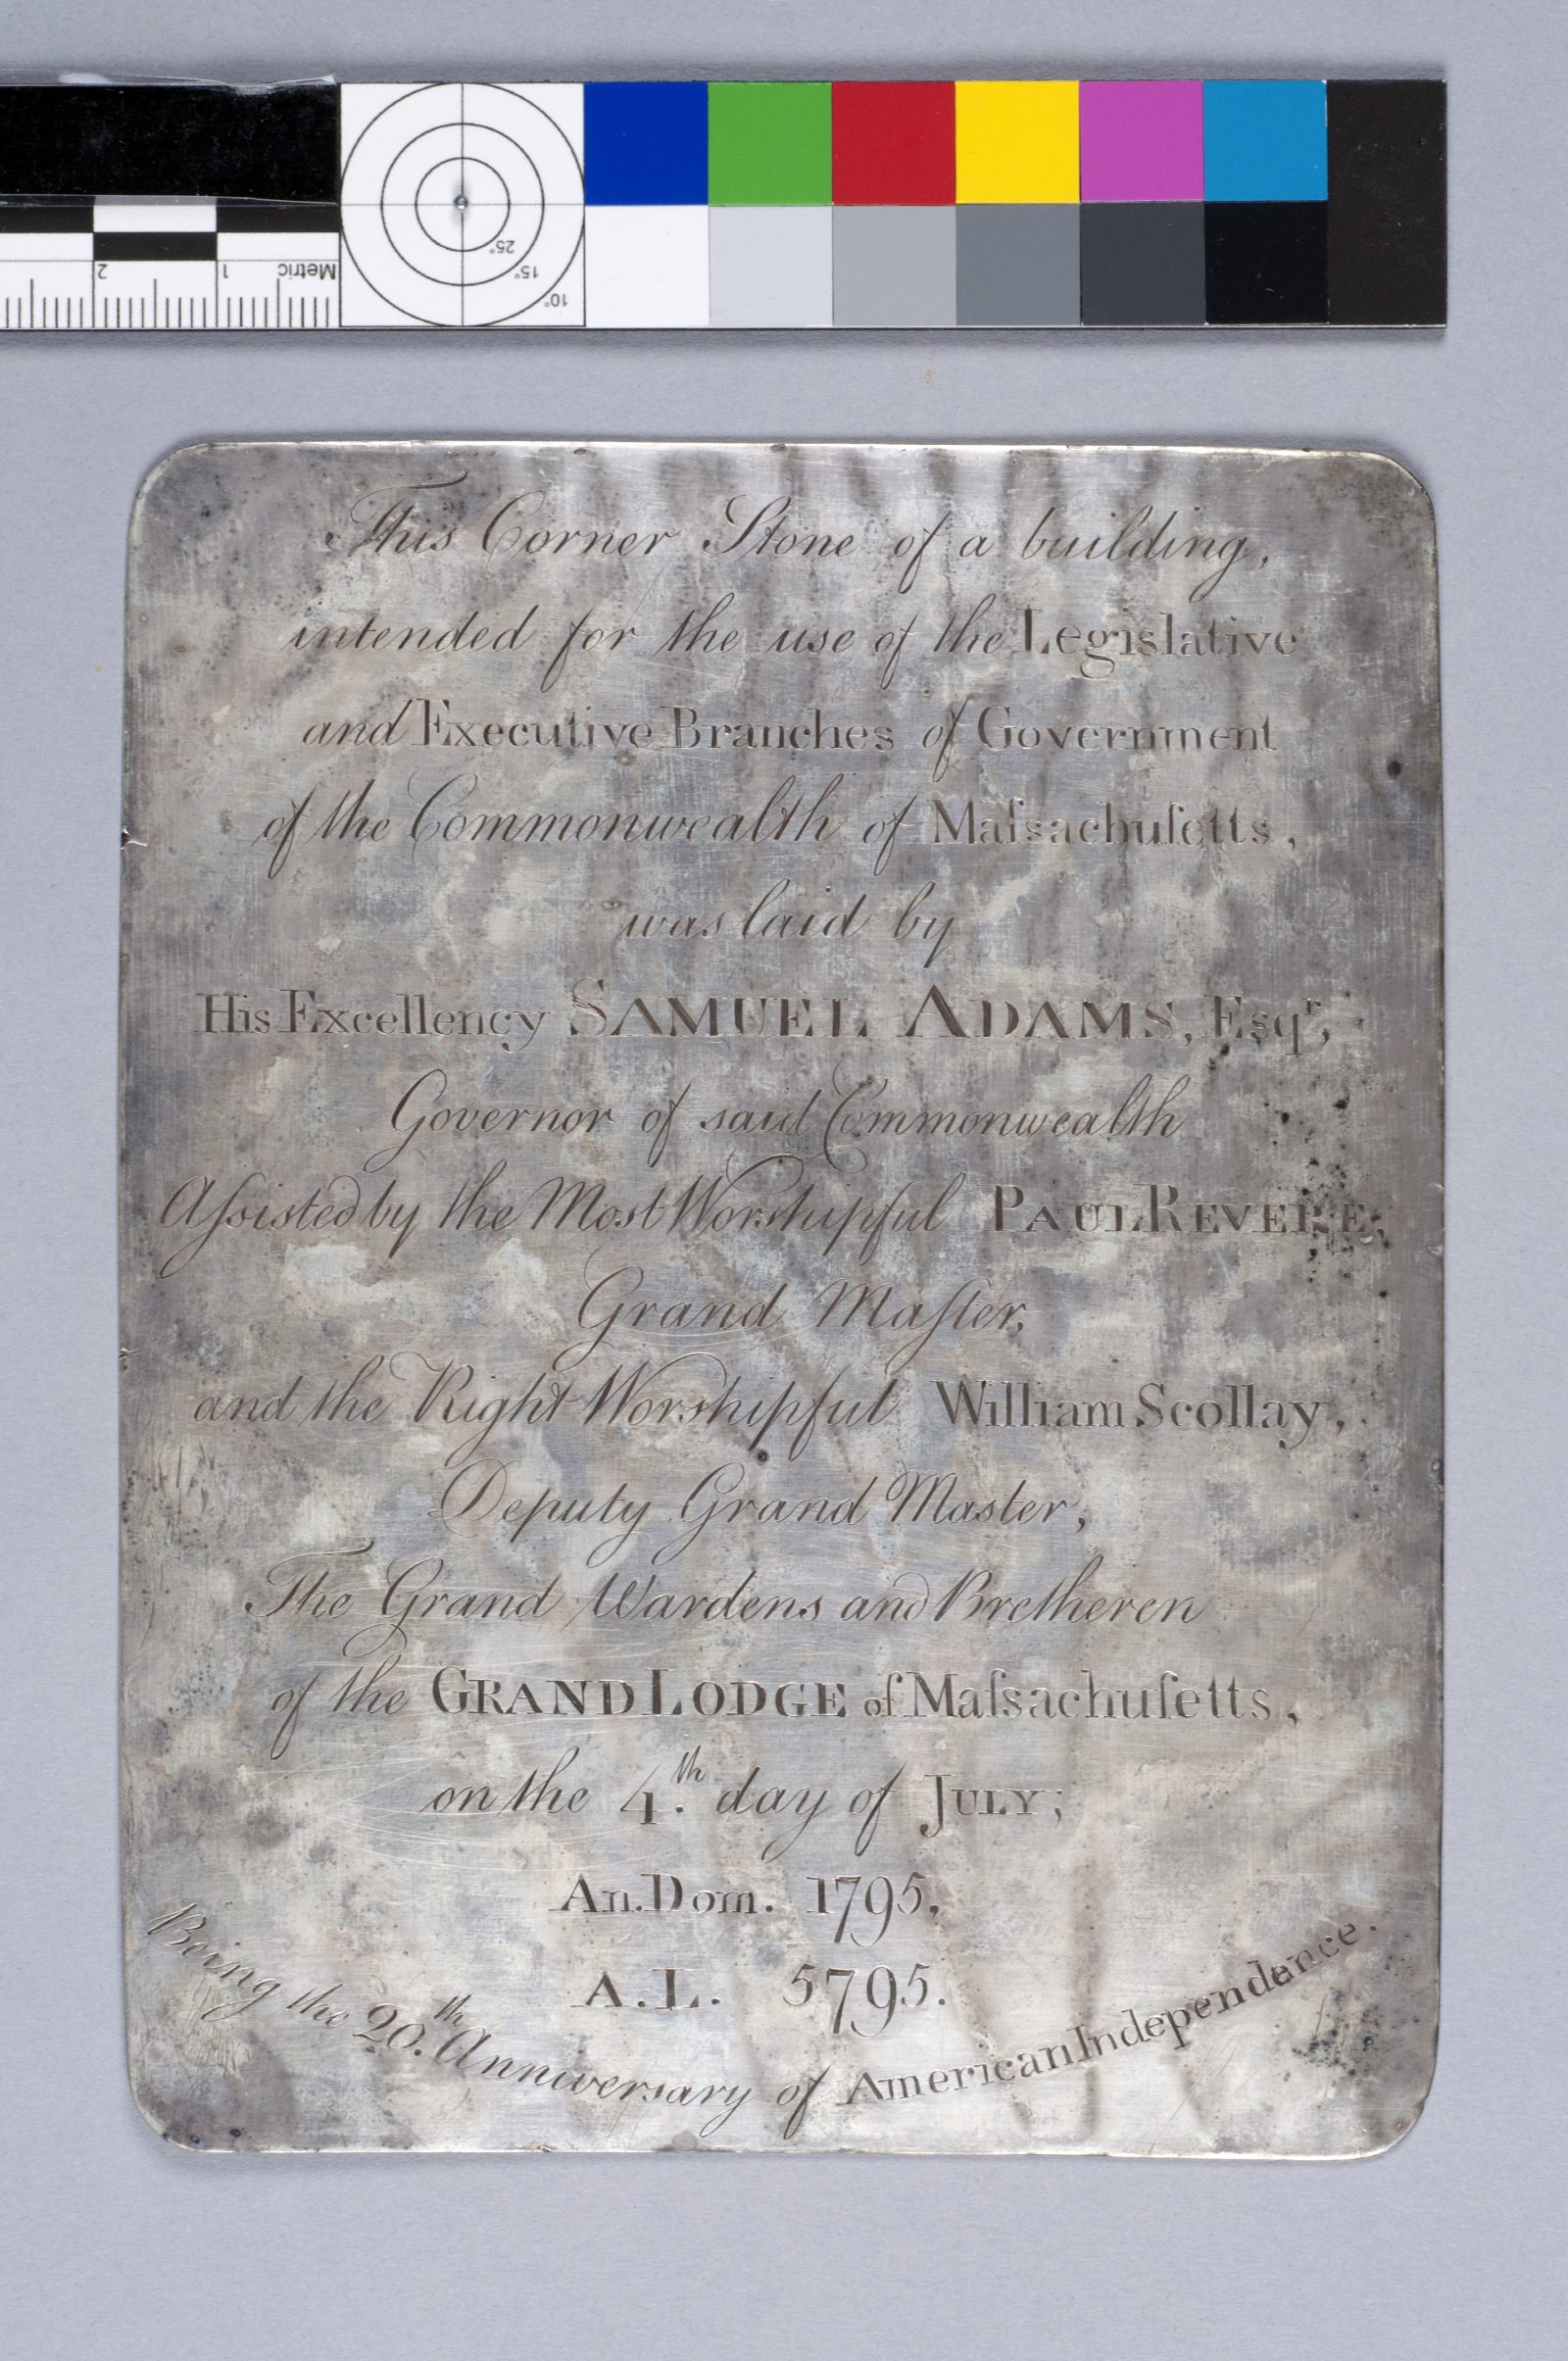 2 1 Metric
25° 15° 10°
This Corner Stone of a building,
intended for the use of the Legislative
and Executive Branches of Government
of the Commonwealth of Maſsachuſetts,
was laid by
His Excellency SAMUEL ADAMS, Esqr,
Governor of said Commonwealth
Aſsisted by the Most Worshipful PAUL REVERE,
Grand Maſter,
and the Right Worshipful William Scollay,
Deputy Grand Master,
The Grand Wardens and Bretheren
of the GRAND LODGE of Maſsachuſetts,
on the 4.th day of JULY;
An. Dom. 1795,
A.L. 5795.
Being the 20.th Anniversary of American Independence.